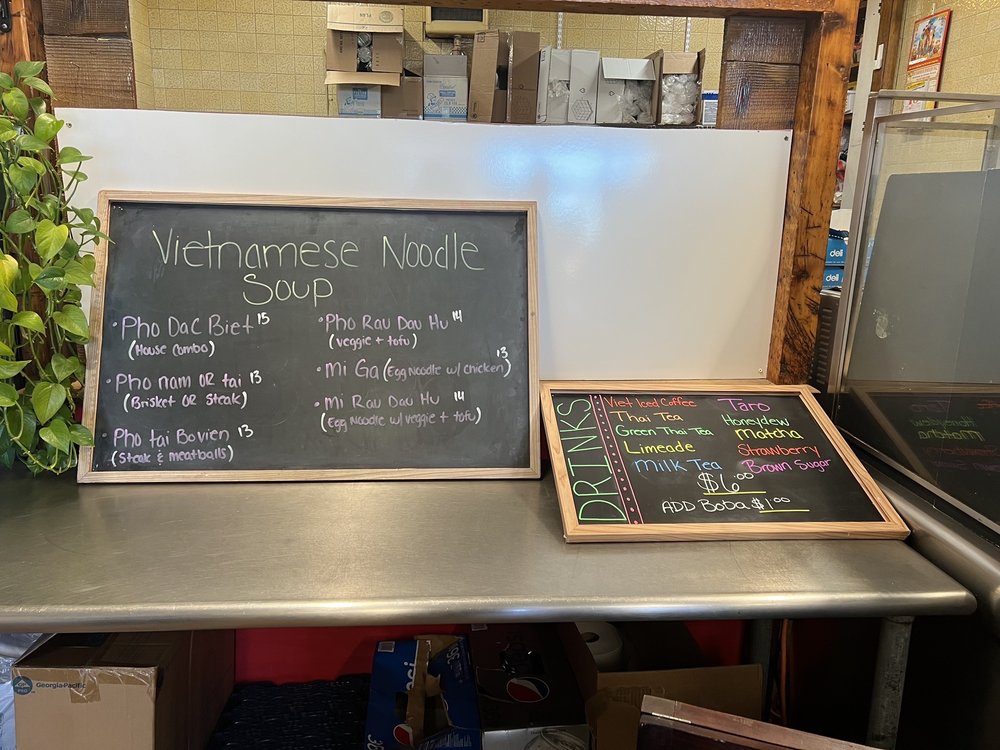 Vietnamese Noodle
Soup
• Pho Dac Biet 15
(House Combo)
• Pho nam OR tai 13
(Brisket OR Steak)
Pho tai Bovien 13
(Steak & meatballs)
• Pho Rau Dau Hu 14
(veggie + tofu)
• mi Ga (Egg Noodle w/ chicken) 13
• Mi Rau Dau Hu 14
(Egg Noodle w/ veggie + tofu)
DRINKS
Viet Iced Coffee
Thai Tea
Green Thai Tea
Limeade
Milk Tea
Taro
Honeydew
Matcha
Strawberry
Brown Sugar
$6.00
ADD Boba $1.00
deli
deli
Georgia-Pacific